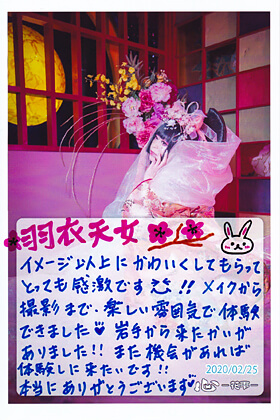 羽衣天女
イメージ以上にかわいくしてもらって
とっても感激です!! メイクから
撮影まで、楽しい雰囲気で体験
できました 岩手から来たかいが
ありました!! また機会があれば
体験しに来たいです!!
2020/02/25
本当にありがとうございます
心-花雫-